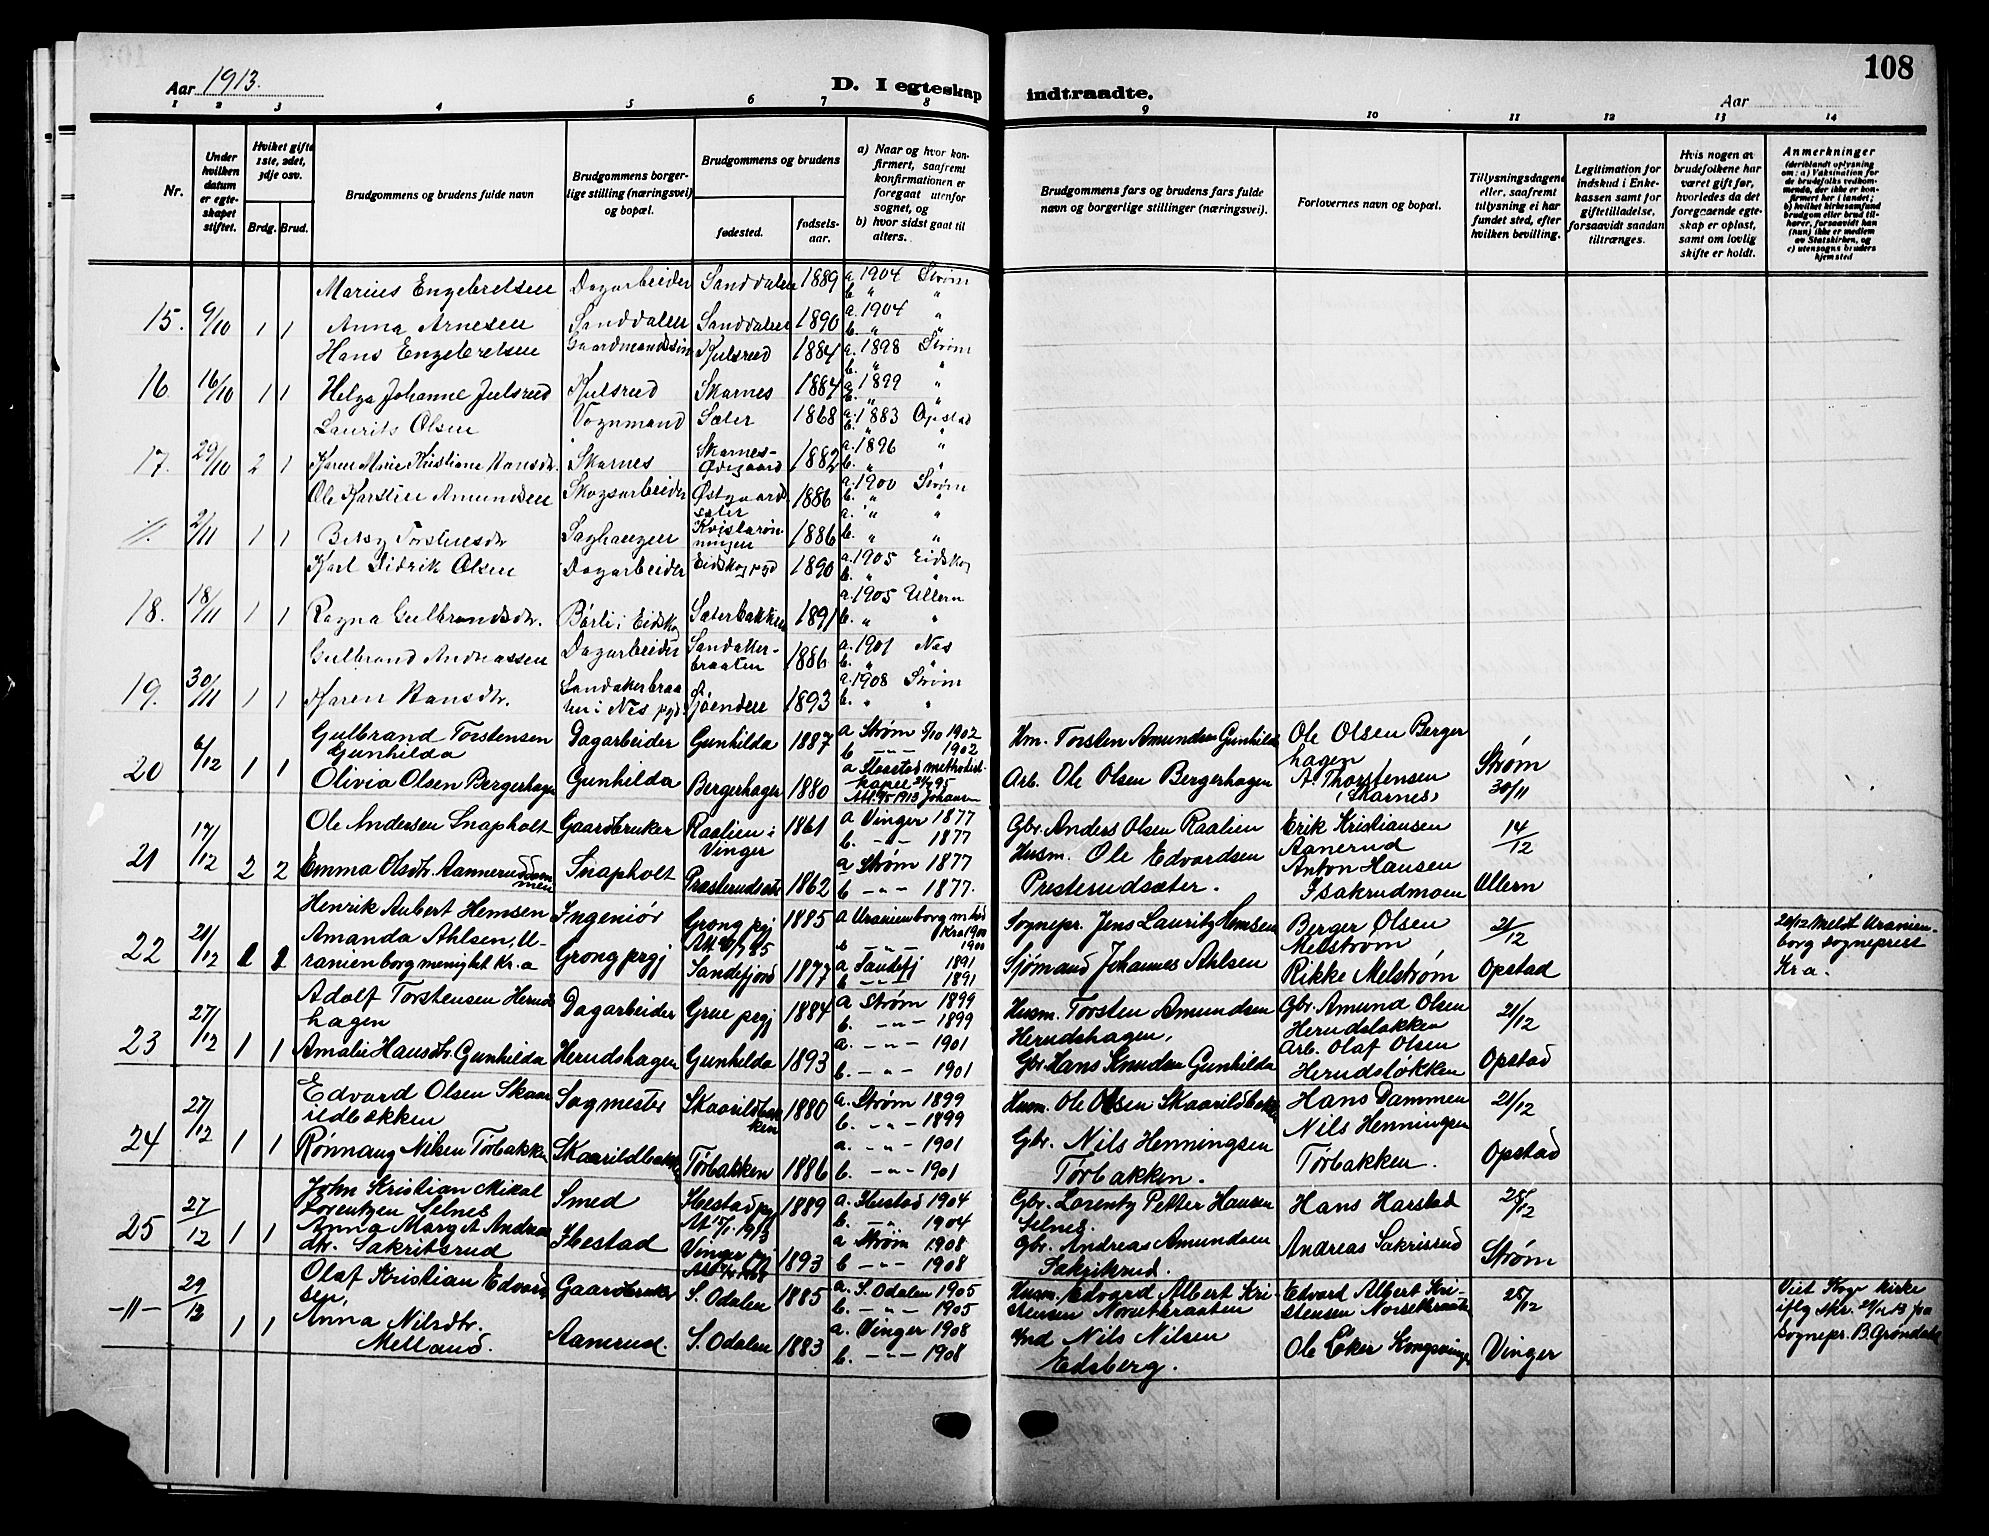 108
Aar 1913.
D. I egteskap indtraadte.
Aar
1 2 3 4 5 6 7 8 9 10 11 12 13 14
Nr.
Under hvilken datum er egteskapet stiftet.
Hvilket gifte 1ste, 2det, 3dje osv.
Brdg. Brud.
Brudgommens og brudens fulde navn
Brudgommens borgerlige stilling (næringsvei) og bopæl.
Brudgommens og brudens
fødested.
fødselsaar.
a) Naar og hvor konfirmert, saafremt konfirmationen er foregaat utenfor sognet, og
b) hvor sidst gaat til alters.
Brudgommens fars og brudens fars fulde navn og borgerlige stillinger (næringsvei).
Forlovernes navn og bopæl.
Tillysningsdagene eller, saafremt tillysning ei har fundet sted, efter hvilken bevilling.
Legitimation for indskud i Enkekassen samt for giftetilladelse, forsaavidt saadan tiltrænges.
Hvis nogen av brudefolkene har været gift før, hvorledes da det foregaaende egteskap er opløst, samt om lovlig skifte er holdt.
Anmerkninger
(deriblandt oplysning om: a) Vaksination for de brudefolks vedkommende, der ikke er konfirmert her i landet; b) hvilket kirkesamfund brudgom eller brud tilhører, forsaavidt han (hun) ikke er medlem av Statskirken, og c) utensogns bruders hjemsted
Marius Engebretsen Dagarbeider Sanddalen 1889 a. 1904 Strøm
b. " "
15. 9/10 1 1 Anna Arnesen Sanddalen Sanddalen 1890 a. 1904 "
b. " "
Hans Engebretsen Gaardmandssøn Julsrud 1884 a. 1898 Strøm
b. " "
16. 16/10 1 1 Helga Johanne Julsrud Julsrud Skarnes 1884 a. 1899 "
b. " "
Laurits Olsen Vognmand Sæter 1868 a. 1883 Opstad
b. " "
17. 29/10 2 1 Karen Marie Kristiane Hansdtr. Skarnes Skarnes-Ødegaard 1882 a. 1896 "
b. " "
Ole Karstin Amundsen Skogsarbeider Østgaardsæter 1886 a. 1900 Strøm
b. " "
". 2/11 1 1 Betsy Torstensdtr Saghaugen Kvistarønningen 1886 a. " "
b. " "
Karl Didrik Olsen Dagarbeider Eidskog pgd 1890 a. 1905 Eidskog
b. " "
18. 18/11 1 1 Ragna Gulbrandsdtr. Børli i Eidskog Sæterbakken 1891 a. 1905 Ullern
b. " "
Gulbrand Andreassen Dagarbeider Sandakerbraaten 1886 a. 1901 Nas
b. " "
19. 30/11 1 1 Karen Hansdtr. Sandakerbraaten i Nes pgd. Sjøenden 1893 a. 1908 Strøm
b. " "
Gulbrand Torstensen Gunhilda Dagarbeider Gunhilda 1887 a Strøm 5/10 1902 Hm. Torsten Amundsen Gunhilda Ole Olsen Bergerhagen
b -"- 1902
20 6/12 1 1 Olivia Olsen Bergerhagen Gunhilda Bergerhagen 1880 a Slaastad methodistkapel 21/4 95 Arb. Ole Olsen Bergerhagen A. Thorstensen (Skarnes) Strøm 30/11
Ole Andersen Snapholt Gaardbruker Raalien i Vinger 1861 a Vinger 1877 Gbr. Anders Olsen Raalien Erik Kristiansen Aanerud 14/12
b. -"- 1877
21 17/12 2 2 Emma Olsdtr. Aanneruddammen Snapholt Præsterudsæter 1862 a Strøm 1877 Husm. Ole Edvardsen Presterudsæter. Anton Hansen Isakrudmoen Ullern
b -"- 1877.
Henrik Aubert Hemsen Ingeniør Grong pgj 1885 a Uranienborg mhed Kra 1900 Sognepr. Jens Lauritz Hemsen Berger Olsen Melstrøm 21/12 20/12 Meldt Uranienborg sogneprest Kra.
b -"- 1900
22 21/12 1 1 Amanda Ahlsen, Uranienborg menight Kr.a Grong prgj Sandefjord 1877 a Sandefj 1891 Sjømand Johannes Ahlsen Rikke Melstrøm Opstad
b -"- 1891
Adolf Torstensen Herudshagen Dagarbeider Grue prgj 1884 a Strøm 1899 Husm. Torsten Amundsen Herudshagen, Gbr. Amund Olsen Herudsløkken 21/12
b. -"- 1899
23 27/12 1 1 Amalie Hansdtr. Gunhilda Herudshagen Gunhilda 1893 a. -"- 1901 Gbr. Hans Knudsen Gunhilda Arb. Olaf Olsen Herudsløkken Opstad
b. -"- 1901
Edvard Olsen Skaarildbakken Sagmester Skaarildbakken 1880 a. Strøm 1899 Husm. Ole Olsen Skaarildbakken Hans Dammen 21/12
b. -"- 1899
24 27/12 1 1 Rønnaug Nilsen Tørbakken Skaarildbakken Tørbakken 1886 a. -"- 1901 Gbr. Nils Henningsen Tørbakken. Nils Henningsen Tørbakken. Opstad
b. -"- 1901
John Kristian Mikal Lorentzen Selnes Smed Ibestad pgj 1889 a. Ibestad 1904 Gbr. Lorentz Petter Hansen Selnes. Hans Harstad 25/12
b. -"- 1904
25 27/12 1 1 Anna Margit Andreasdtr. Sakritsrud Ibestad Vinger pgj 1893 a Strøm 1908 Gbr. Andreas Amundsen Sakrikrud. Andreas Sakrisrud Strøm
b -"- 1908
Olaf Kristian Edvardsen, Gaardbruker S. Odalen 1885 a. S. Odalen 1905 Husm. Edvard Albert Kristensen Norsebraaten Edvard Albert Kristensen Norsebraaten 25/12 Viet Kogv. kirke iflg skr. 29/12 13 fra sognepr. B. Grøndahl
b. -"- 1905
-"- 29/12 1 1 Anna Nilsdtr. Melland. Aamrud. S. Odalen 1883 a. Vinger 1908 Ind Nils Nilsen Edsberg. Ole Eker Kongsvinger Vinger
b. -"- 1908